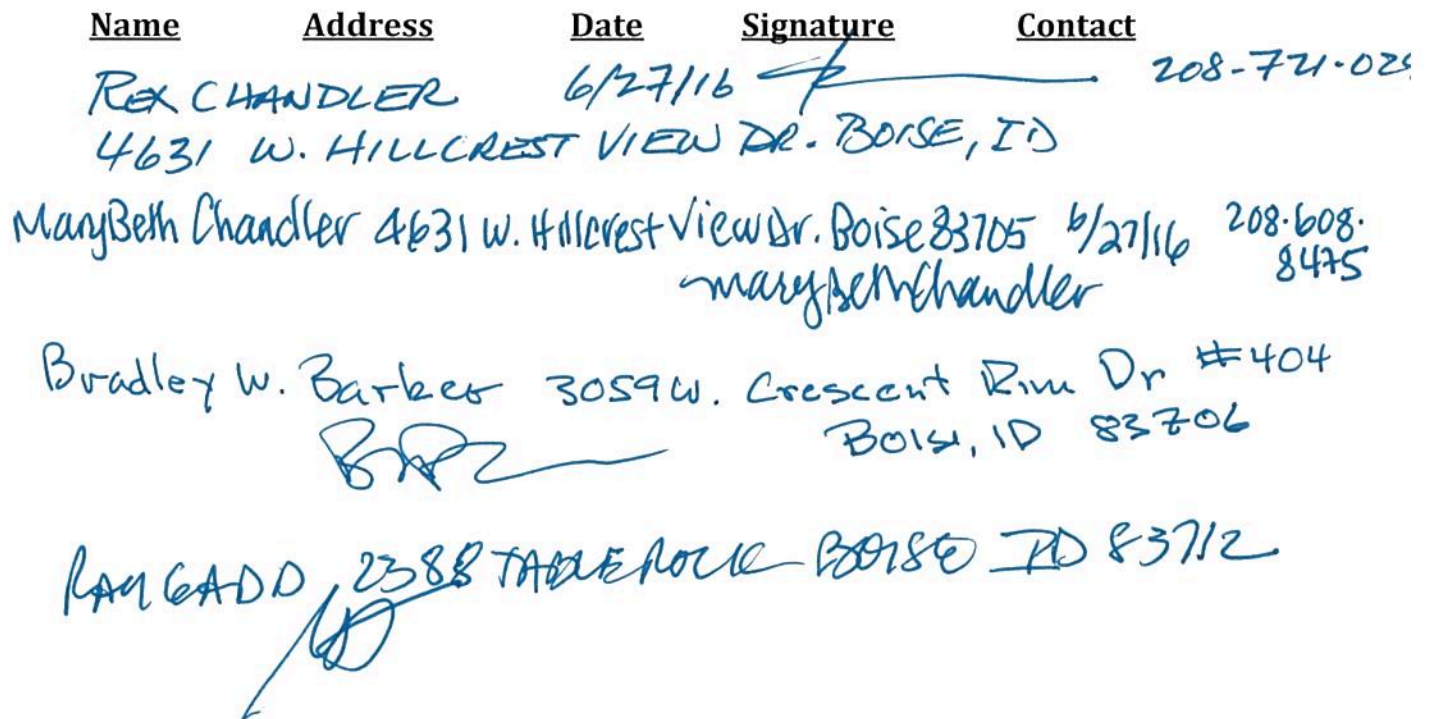 Name Address Date Signature Contact
REX CHANDLER 6/27/16 208-721-02
4631 W. HILLCREST VIEW DR. BOISE, ID
MaryBeth Chandler 4631 W. Hillcrest View Dr. Boise 83705 6/27/16 208.608.
8475
maryBethChandler
Bradley W. Barker 3059 W. Crescent Rim Dr #404
Boise, ID 83706
RAY GADD, 2388 TABLEROCK BOISE ID 83712